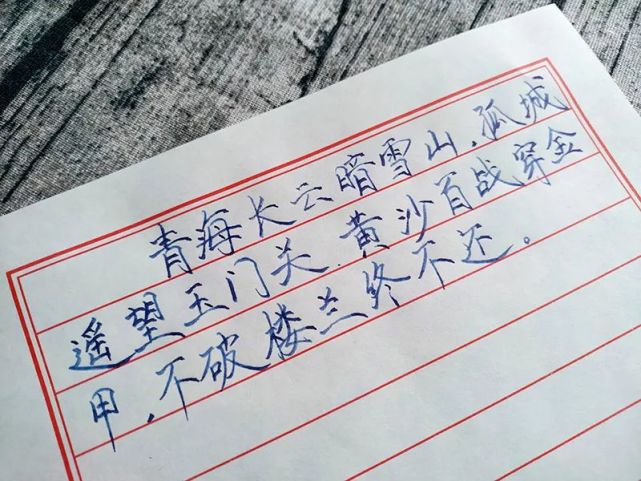 青海长云暗雪山，孤城
遥望玉门关.黄沙百战穿金
甲，不破楼兰终不还。